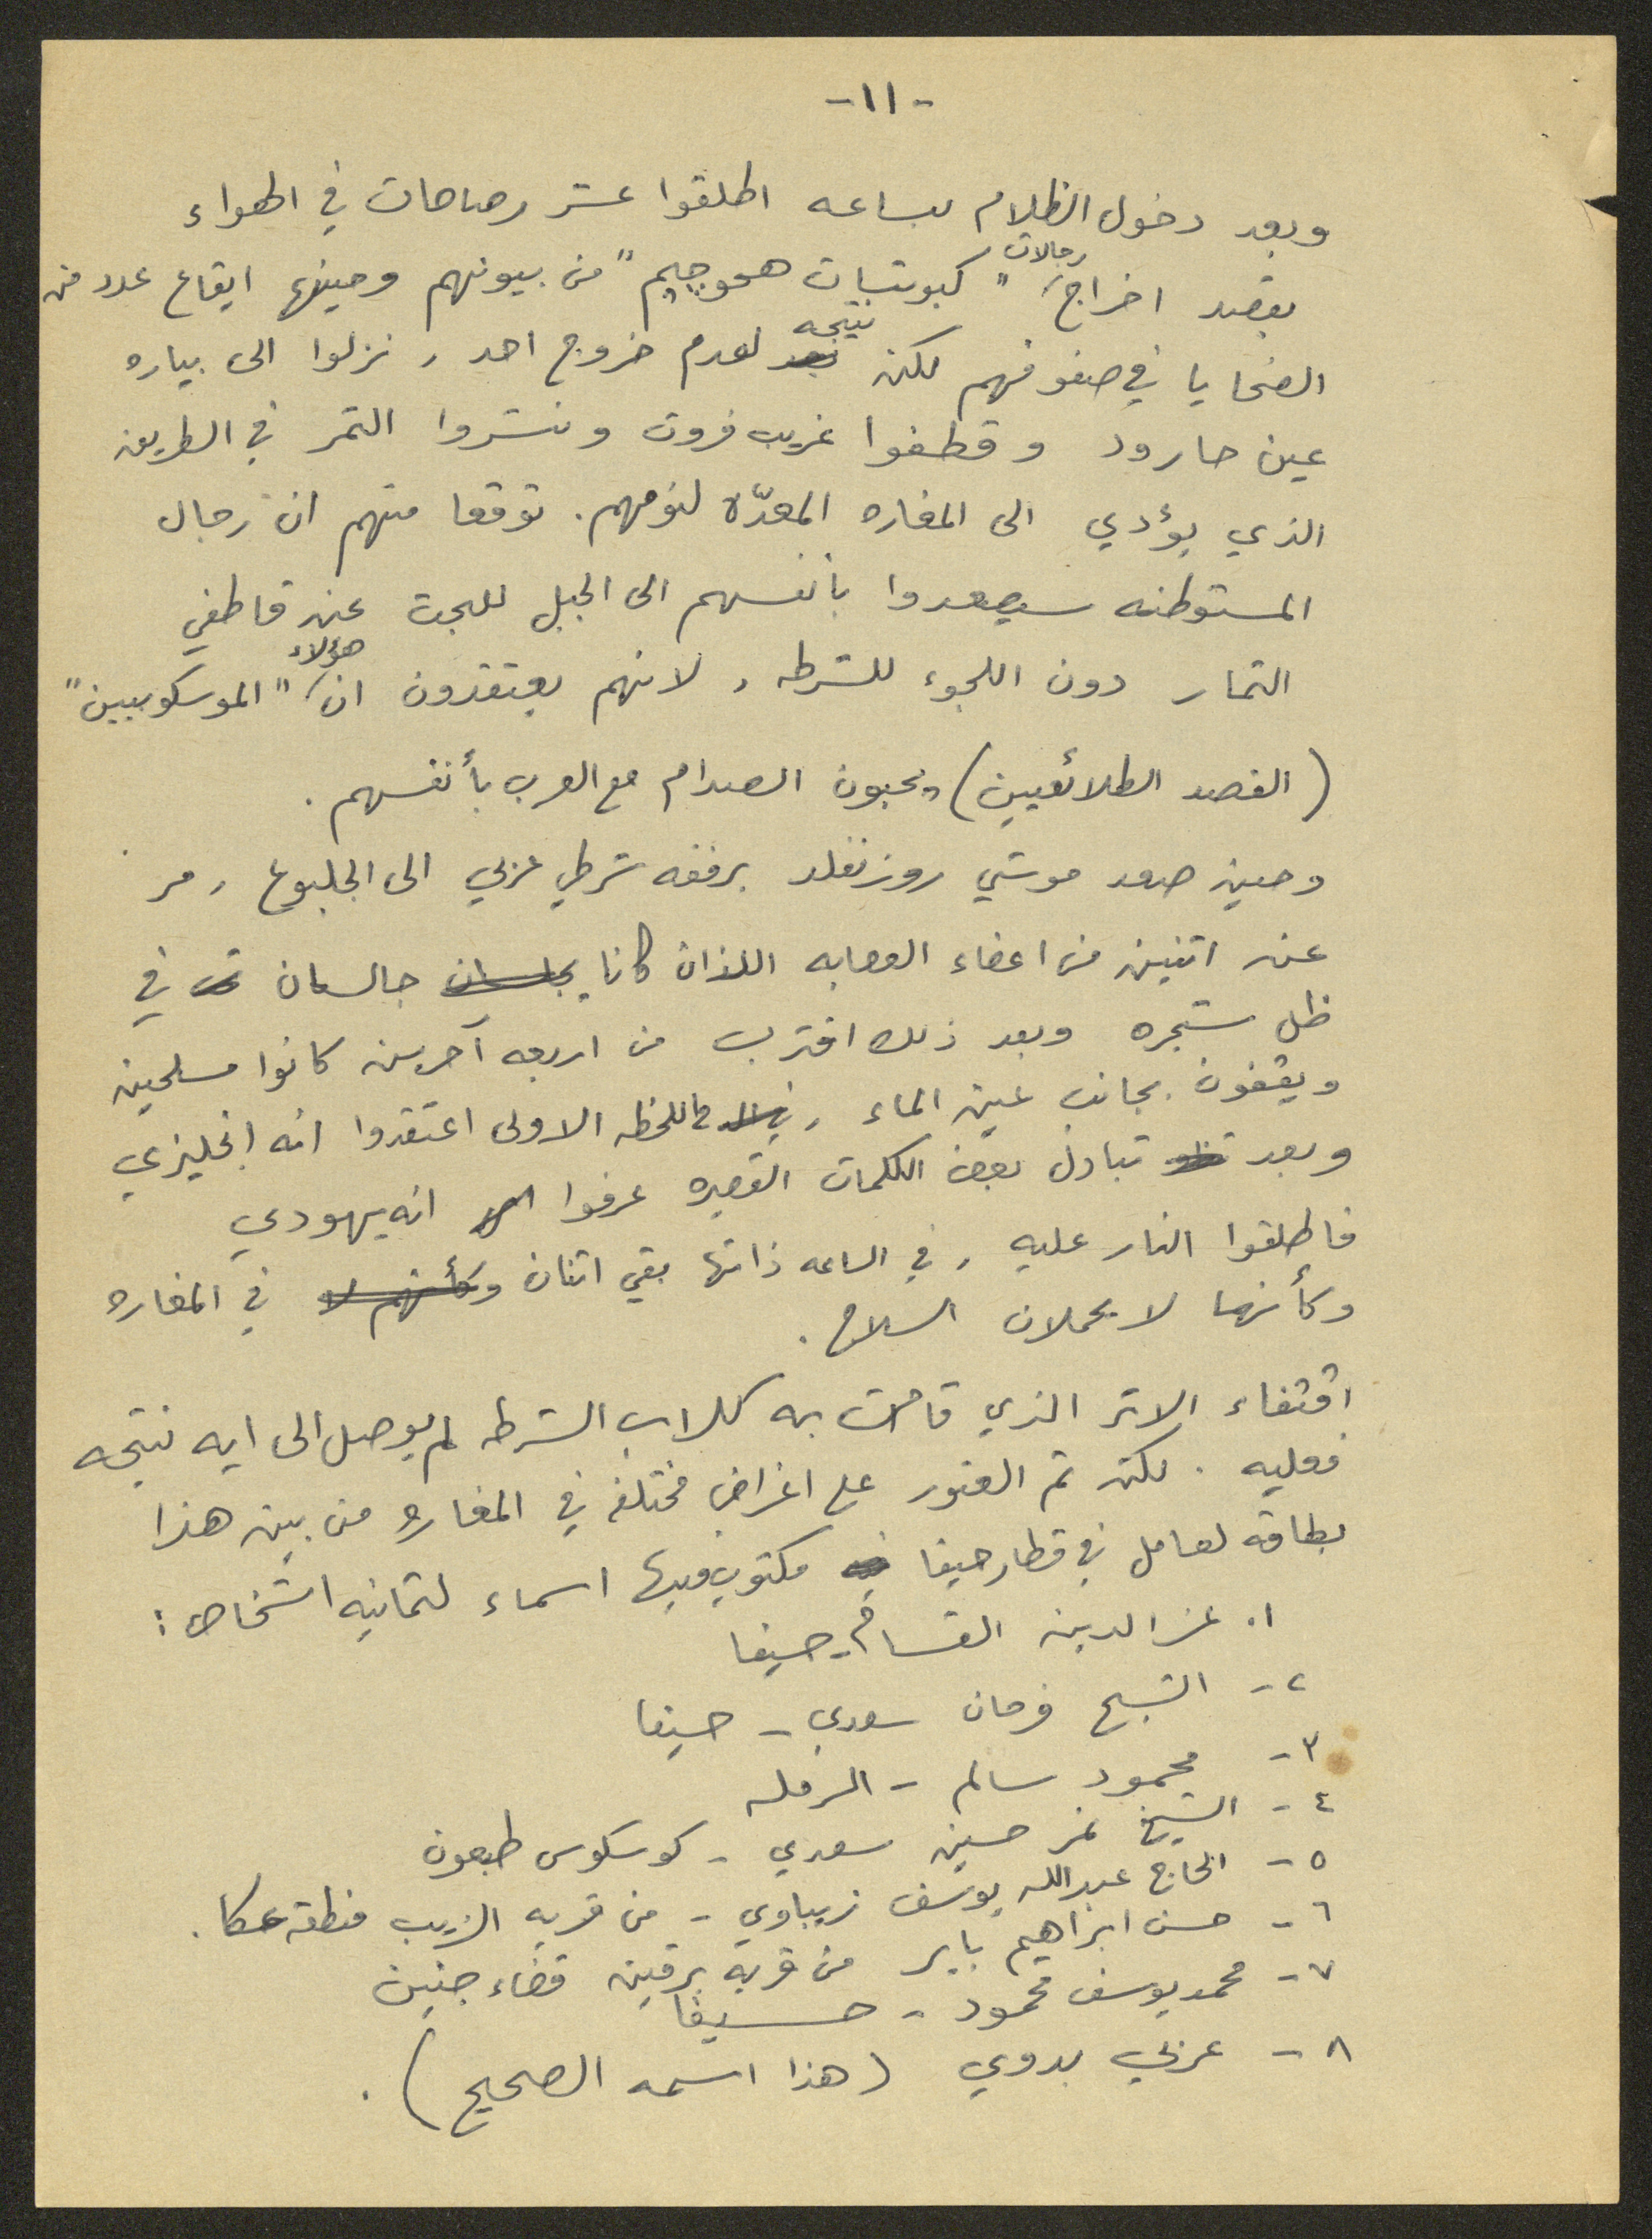 -١١-
وبعد دخول الظلام بساعه اطلقوا عشر رصاصات في الهواء
بقصد اخراج رجالات "كبوتسات هحوجيم" من بيوتهم وحينها ايقاع عدد من
الضحايا في صفوفهم لكن نتيجه لعدم خروج احد , نزلوا الى بياره
عين حارود وقطفوا غريب فروت ونشروا الثمر في الطريق
الذي يؤدي الى المغاره المعدّه لنومهم. توقعا منهم ان رجال
المستوطنه سيصعدوا بانفسهم الى الجبل للبحث عن قاطفي
الثمار دون اللجوء للشرطه , لانهم يعتقدون ان هؤلاء "الموسكوبيين"
(القصد الطلائعيين) يحبون الصدام مع العرب بأنفسهم.
وحين صعد موشي روزنفلد برفقه شرطي عربي الى الجلبوع , مر
عن اثنين من اعضاء العصابه اللذان كانا يجلسان جالسان في
ظل شجره وبعد ذلك اقترب من اربعه آخرين كانوا مسلحين
ويقفون بجانب عين الماء , في اللحظه الاولى اعتقدوا انه انجليزي
وبعد تبادل بعض الكلمات القصيره عرفوا انه يهودي
فاطلقوا النار عليه , في الساعه ذاتها بقي اثنان وكأنهم لا في المغاره
وكأنهما لا يحملان السلاح.
اقتفاء الاثر الذي قامت به كلاب الشرطه لم يوصل الى ايه نتيجه
فعليه. لكن تم العثور على اغراض مختلفه في المغاره من بين هذا
بطاقه لعامل في قطار حيفا مكتوب فيها اسماء لثمانيه اشخاص:
١. عز الدين القسام - حيفا
٢- الشيخ فرحان سعدي - حيفا
٣- محمود سالم - الرمله
٤- الشيخ نمر حسين سعدي - كوسكوس طبعون
٥- الحاج عبدالله يوسف زيباوي - من قريه الزيب منطقة عكا.
٦- حسن ابراهيم باير من قرية برقين قضاء جنين
٧- محمد يوسف محمود - حيفا
٨- عربي بدوي (هذا اسمه الصحيح).